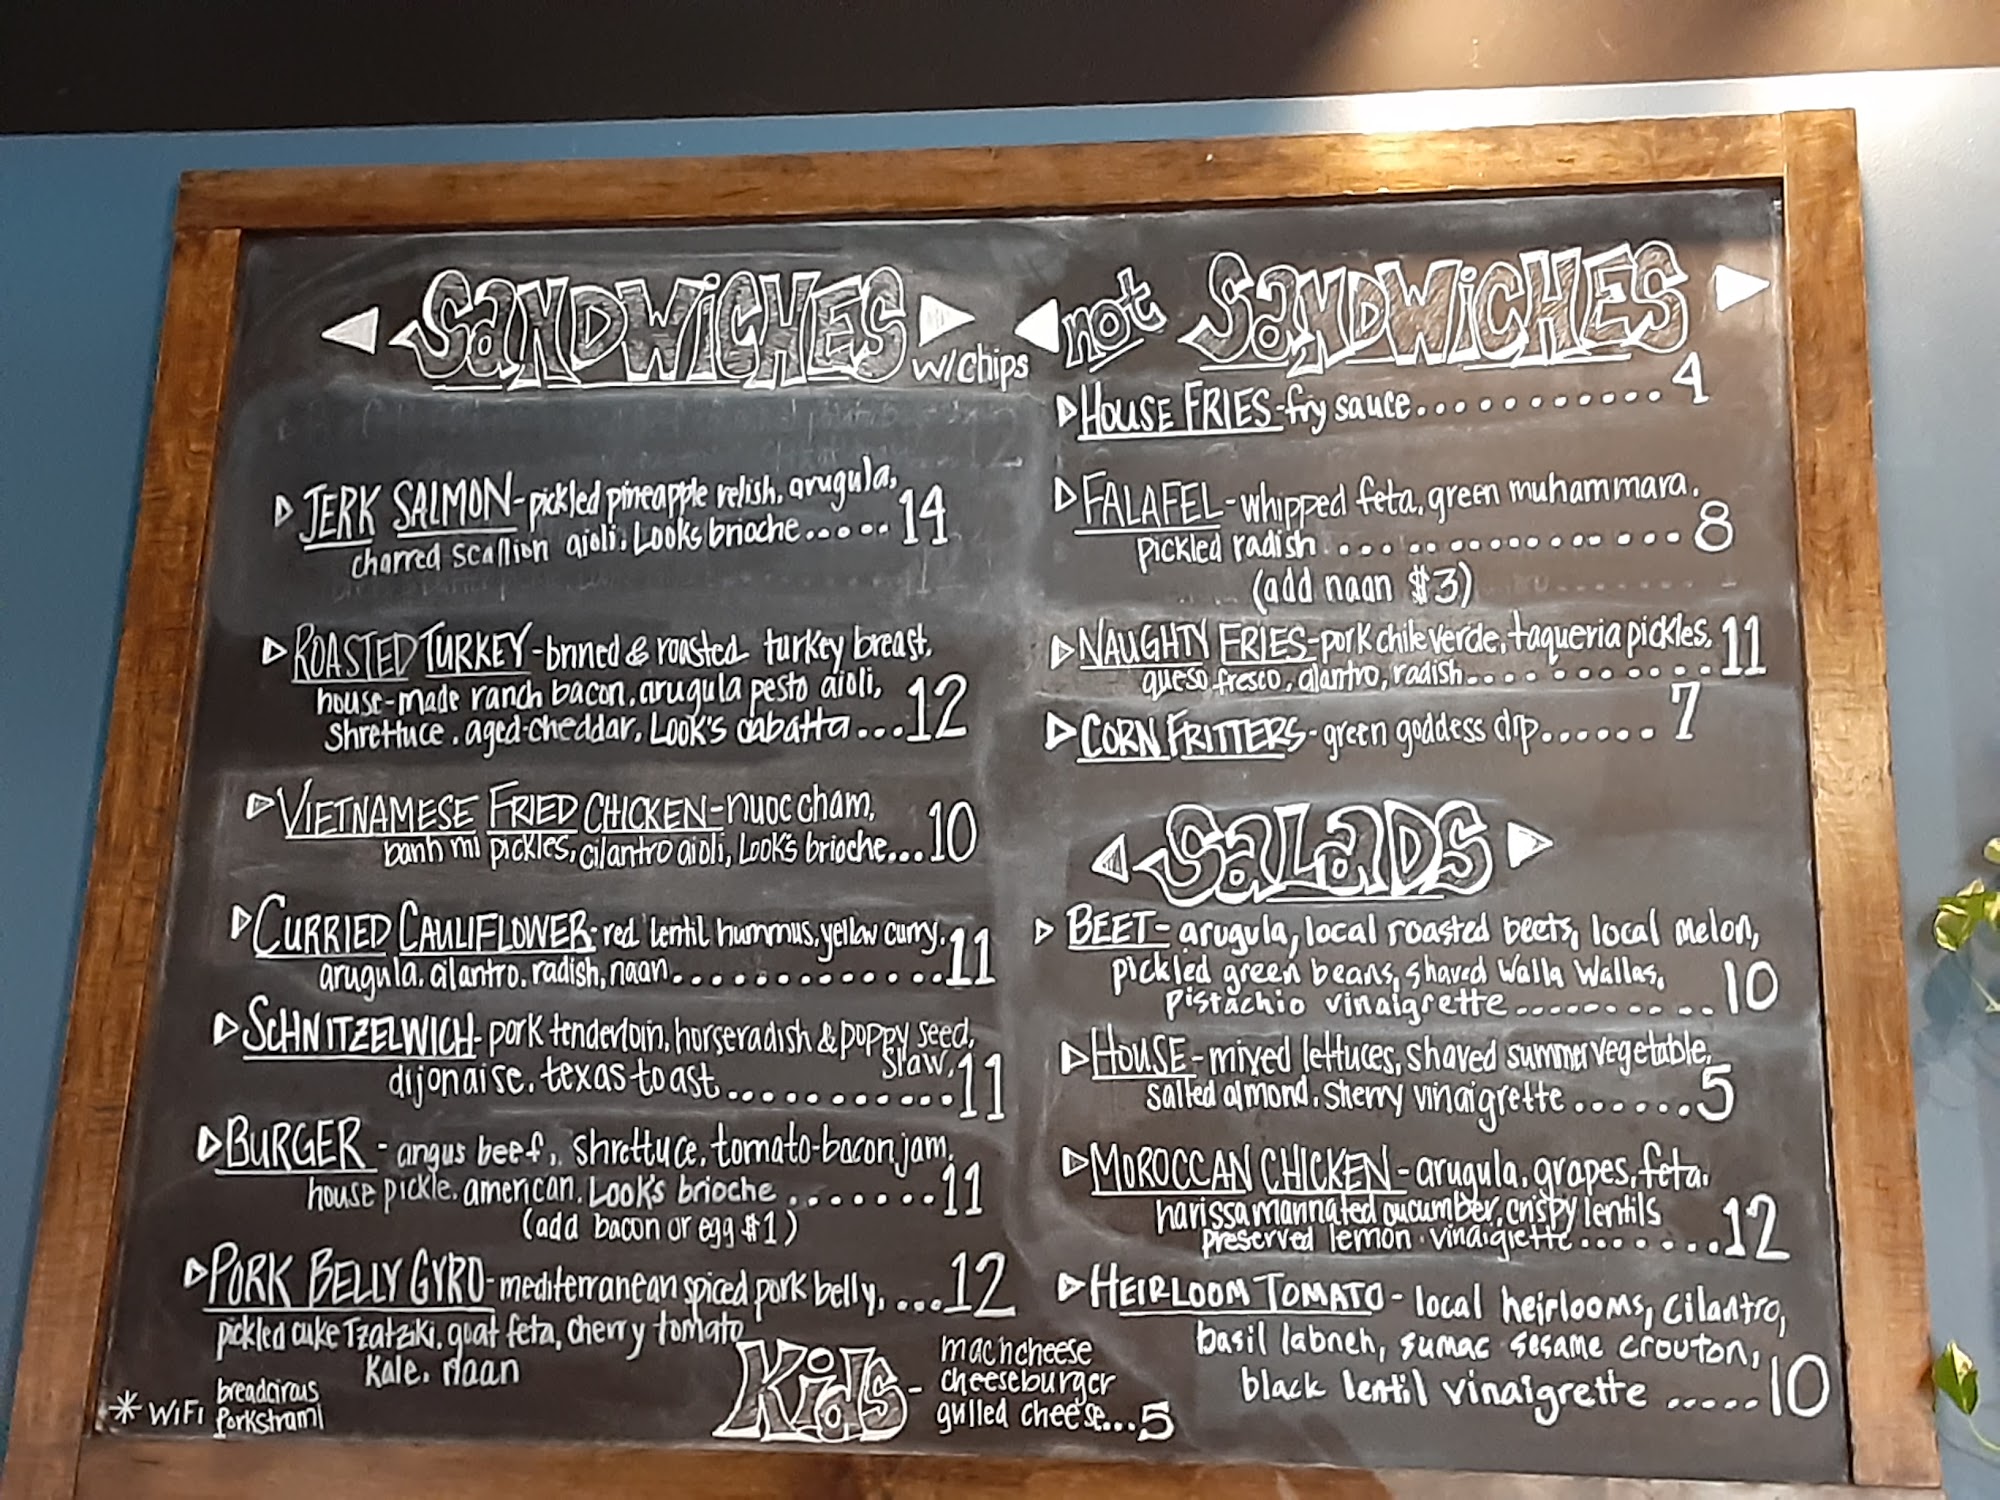 SANDWICHES w/chips
JERK SALMON - pickled pineapple relish, arugula,
charred scallion aioli, Looks brioche ..... 14
ROASTED TURKEY - brined & roasted turkey breast,
house-made ranch bacon, arugula pesto aioli,
shrettuce, aged-cheddar, Look's ciabatta ... 12
VIETNAMESE FRIED CHICKEN - nuoc cham,
banh mi pickles, cilantro aioli, Look's brioche ... 10
CURRIED CAULIFLOWER - red lentil hummus, yellow curry,
arugula, cilantro, radish, naan ............. 11
SCHNITZELWICH - pork tenderloin, horseradish & poppy seed,
slaw,
dijonaise, texas toast ........... 11
BURGER - angus beef, shrettuce, tomato-bacon jam,
house pickle, american, Look's brioche ....... 11
(add bacon or egg $1)
PORK BELLY GYRO - mediterranean spiced pork belly, ... 12
pickled cuke Tzatziki, goat feta, cherry tomato
Kale, naan
* WiFi breadcircus
porkstrami
Kids - mac'n cheese
cheeseburger
grilled cheese ... 5
not SANDWICHES
HOUSE FRIES - fry sauce ............ 4
FALAFEL - whipped feta, green muhammara,
pickled radish ................. 8
(add naan $3)
NAUGHTY FRIES - pork chile verde, taqueria pickles,
queso fresco, cilantro, radish .......... 11
CORN FRITTERS - green goddess dip ...... 7
SALADS
BEET - arugula, local roasted beets, local melon,
pickled green beans, shaved Walla Wallas,
pistachio vinaigrette ........... 10
HOUSE - mixed lettuces, shaved summer vegetable,
salted almond, sherry vinaigrette ...... 5
MOROCCAN CHICKEN - arugula, grapes, feta,
harissa marinated cucumber, crispy lentils
preserved lemon vinaigrette ....... 12
HEIRLOOM TOMATO - local heirlooms, cilantro,
basil labneh, sumac sesame crouton,
black lentil vinaigrette ..... 10